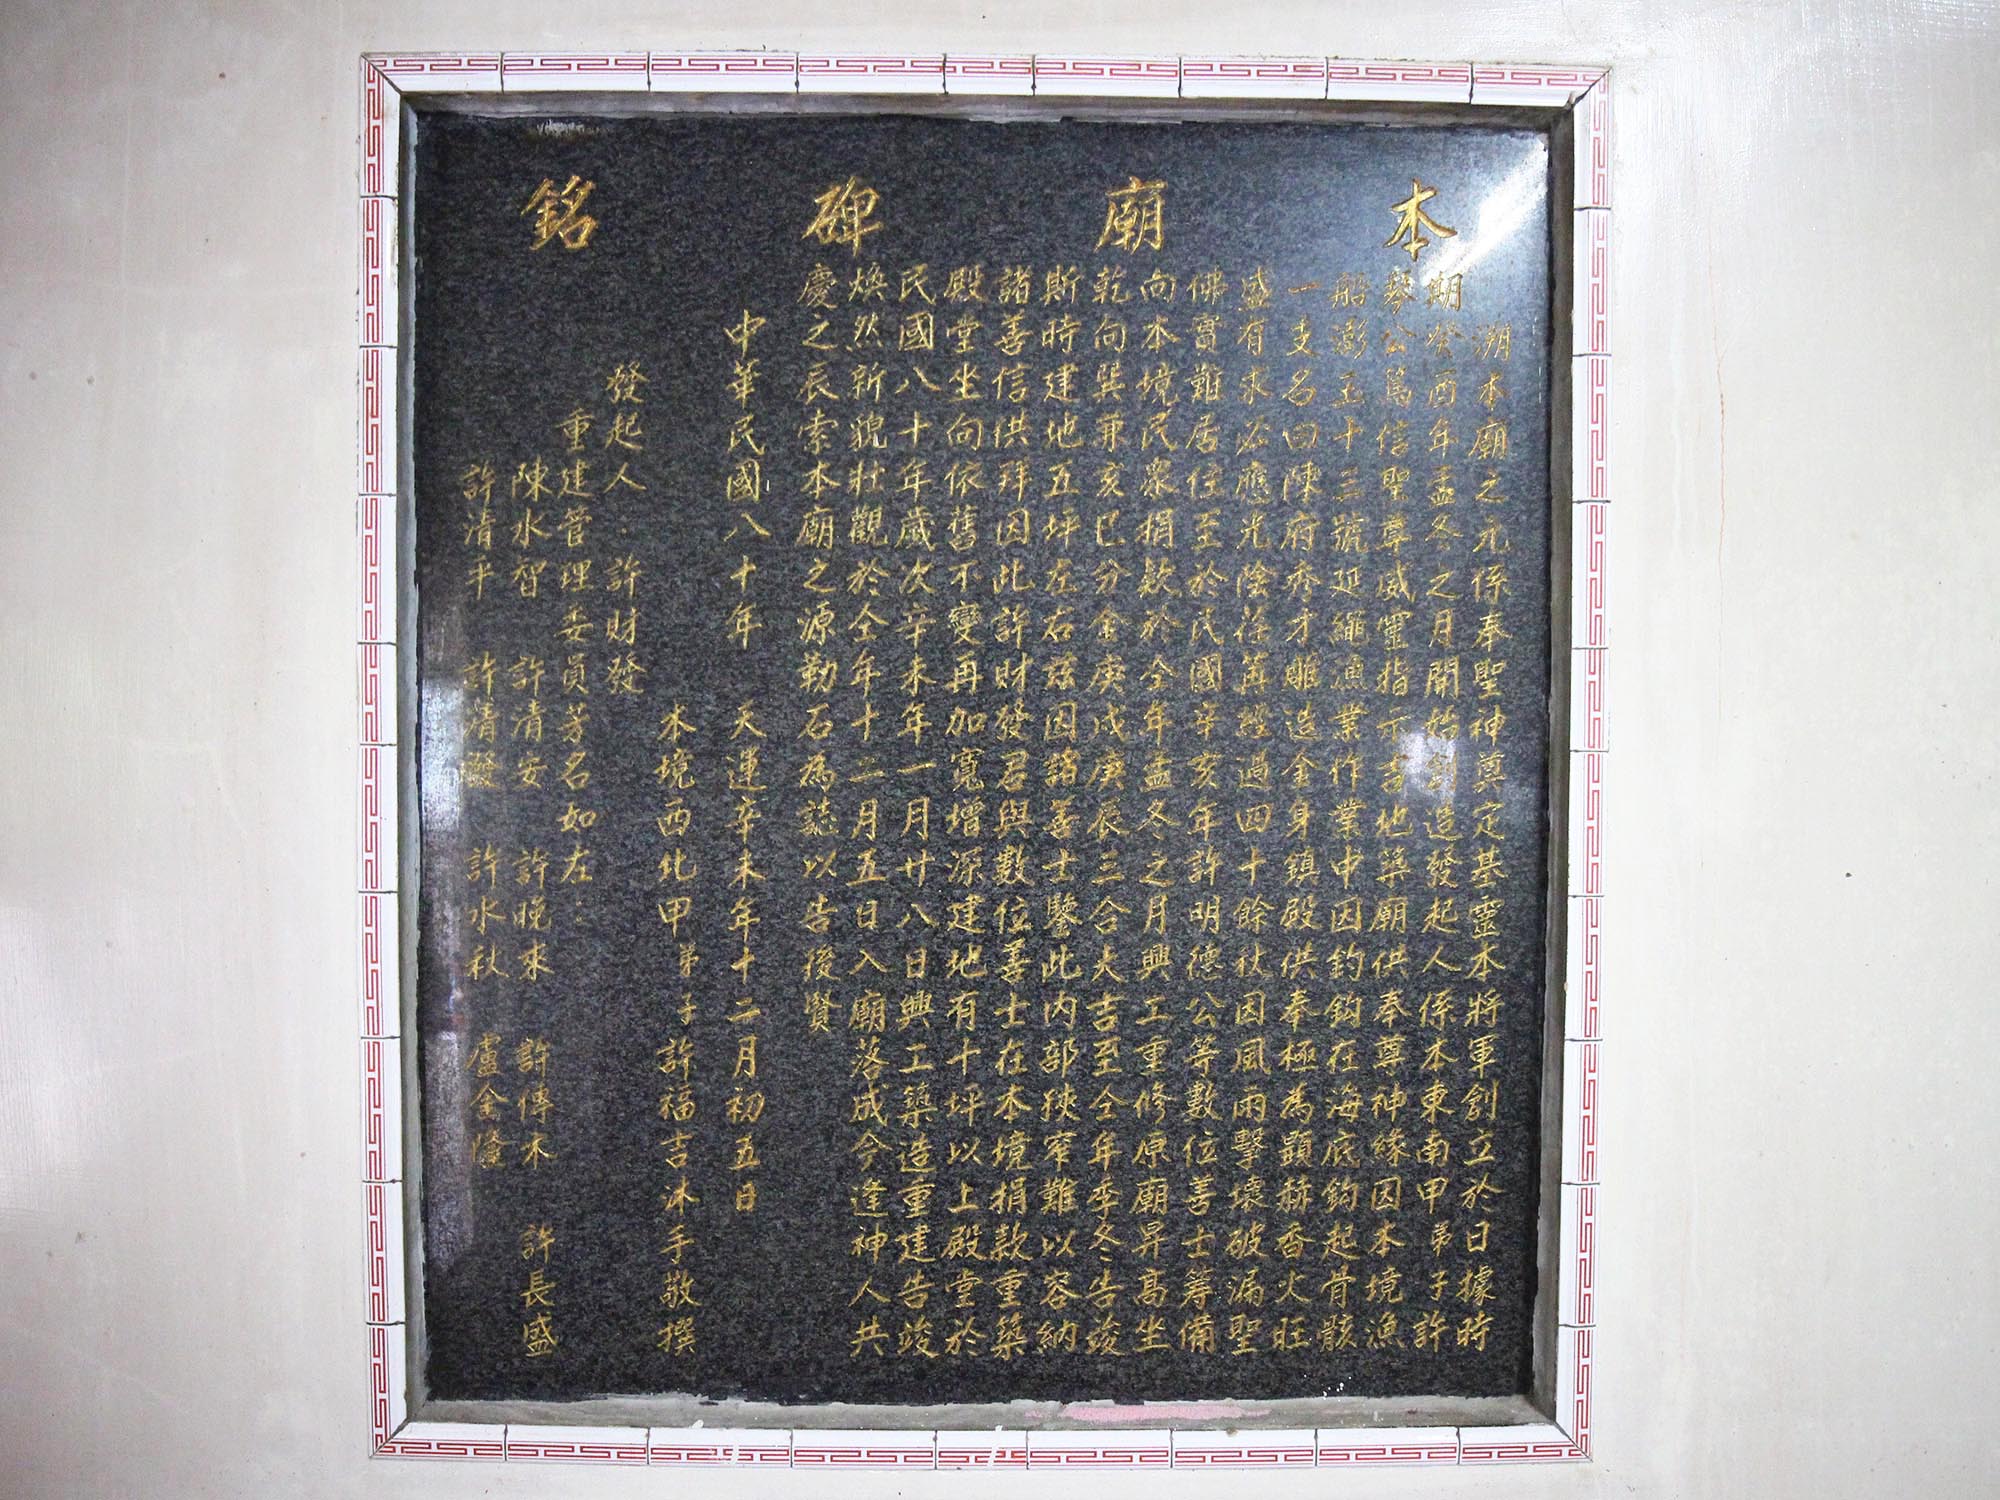 本廟碑銘
溯本廟之元係奉聖神奠定基靈木將軍創立於日據時
期癸酉年孟冬之月開始創造發起人係本東南甲弟子許
琴公篤信聖尊威靈指示吉地築廟供奉尊神緣因本境漁
船澎玉十三號延繩漁業作業中因釣鈎在海底鈎起骨骸
一支名曰陳府秀才雕造金身鎮殿供奉極為顯赫香火旺
盛有求必應光陰荏苒經過四十餘秋因風雨擊壞破漏聖
佛實難居住至於民國辛亥年許明德公等數位善士籌備
向本境民眾捐款於仝年孟冬之月興工重修原廟昇高坐
乾向巽兼亥巳分金庚戌庚辰三合大吉至仝年季冬告竣
斯時建地五坪左右茲因諸善士鑒此內部狹窄難以容納
諸善信供拜因此許財發君與數位善士在本境捐款重築
殿堂坐向依舊不變再加寬增深建地有十坪以上殿堂於
民國八十年歲次辛未年一月廿八日興工築造重建告竣
煥然新貌壯觀於仝年十二月五日入廟落成今逢神人共
慶之辰索本廟之源勒石為誌以告後賢
中華民國八十年 天運辛未年十二月初五日
本境西北甲弟子許福吉沐手敬撰
發起人:許財發
重建管理委員芳名如左:
陳水智 許清安 許晚來 許傳木 許長盛
許清平 許清發 許水秋 盧金隆